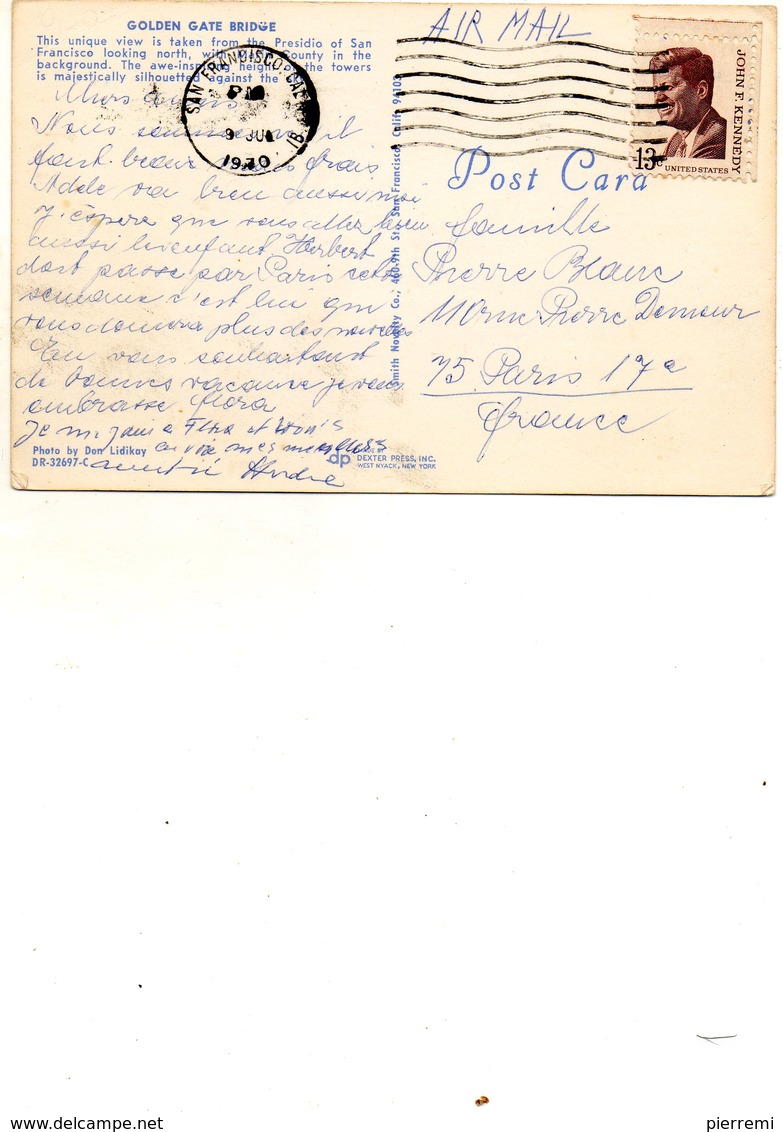 GOLDEN GATE BRIDGE
This unique view is taken from the Presidio of San
Francisco looking north, with County in the
background. The awe-inspiring height of the towers
is majestically silhouetted against the
SAN FRANCISCO, CALIF.
PM
9 JUL
1970
AIR MAIL
JOHN F. KENNEDY
13c
UNITED STATES
Post Card
Nous il
fait beau frais
va bien aussi moi
J'éspère que vous allez bien
aussi Herbert
doit passe par Paris cette
semaine c'est lui qui
vous donnera plus des nouvelles
En vous souhaitant
de bonnes vacance je vous
embrasse Flora
Je
mes
André
famille
Pierre Blanc
110 rue Pierre Demour
75 Paris 17e
France
Smith Novelty Co., 460-9th St., San Francisco, Calif. 94103
Photo by Don Lidikay
DR-32697-C
dp
MADE BY
DEXTER PRESS, INC.
WEST NYACK, NEW YORK
delcampe.net
pierremi